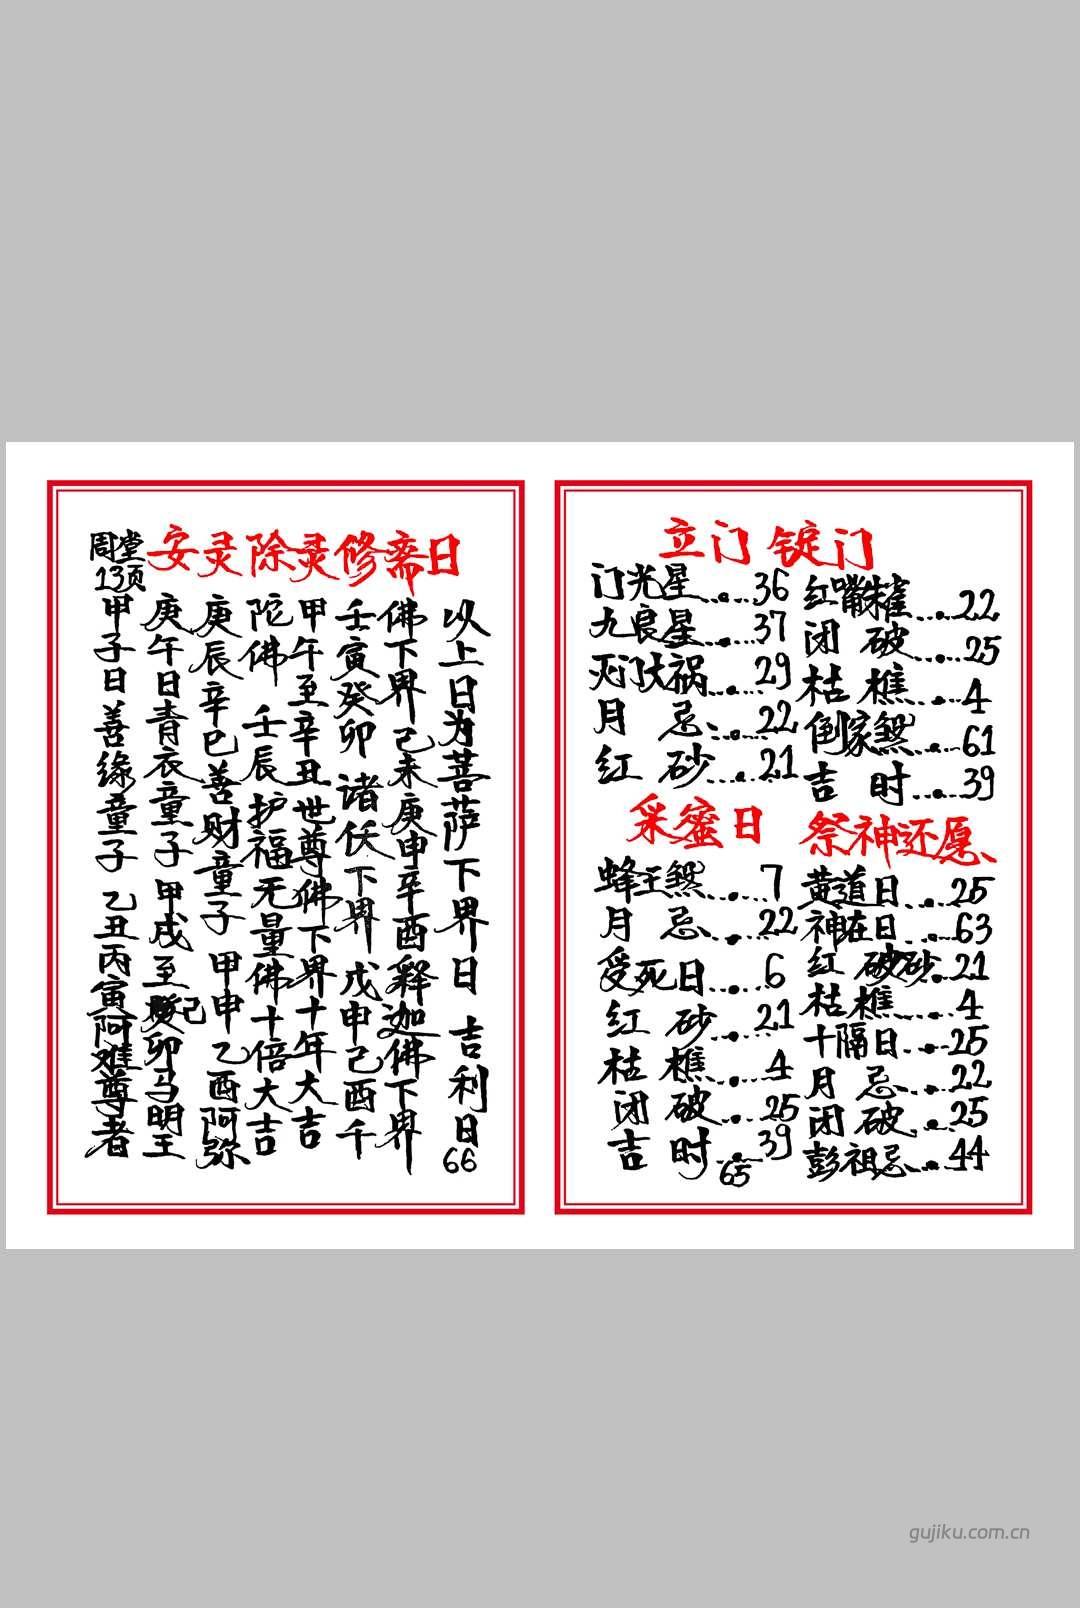 安灵除灵修斋日
周堂
13页
甲子日善缘童子 乙丑丙寅阿难尊者
庚午日青衣童子 甲戌至癸卯马明王
己
庚辰辛巳善财童子 甲申乙酉阿弥
陀佛 壬辰护福无量佛十倍大吉
甲午至辛丑世尊佛下界十年大吉
壬寅癸卯诸仸下界 戊申己酉千
佛下界己未庚申辛酉释迦佛下界
以上日为菩萨下界日 吉利日
66
立门 锭门
门光星......36
九良星......37
灭门大祸......29
月 忌......22
红 砂......21
红嘴朱雀......22
闭 破......25
枯 樵......4
倒家煞......61
吉 时......39
采蜜日
蜂王煞......7
月 忌......22
受死日......6
红 砂......21
枯 樵......4
闭 破......25
吉 时......39
祭神还愿
黄道日......25
神在日......63
红 破砂..21
枯樵......4
十隔日......25
月 忌......22
闭 破......25
彭祖忌......44
65
gujiku.com.cn